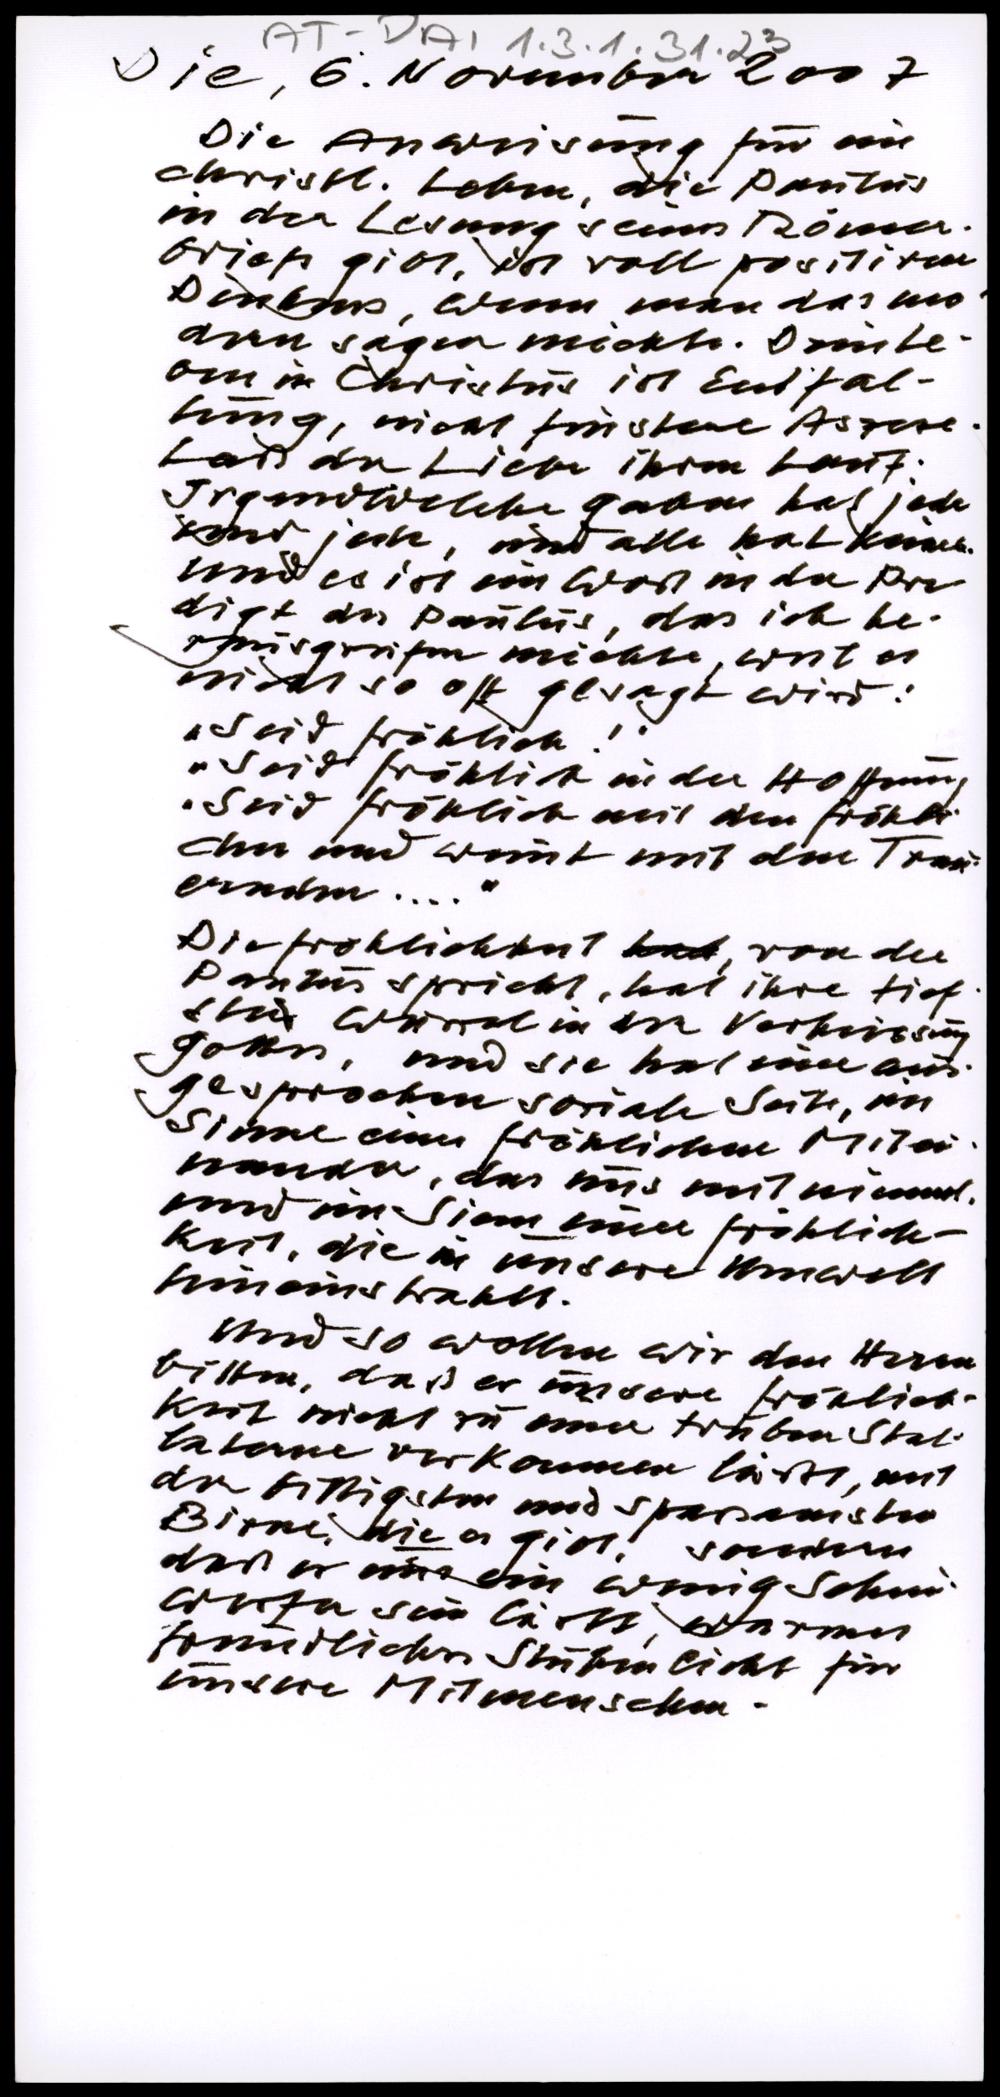 AT-DAI 1.3.1.31.23
Die, 6. November 2007
Die Anweisung für ein
christl. Leben, die Paulus
in der Lesung seines Römer-
briefs gibt, ist voll positiven
Denkens, wenn man das mo-
dern sagen möchte. Denn Le-
ben in Christus ist Entfal-
tung, nicht finstere Aszese.
Laß der Liebe ihren Lauf.
Irgendwelche Gaben hat jede
und jeder, und alle hat keiner.
Und es ist ein Wort in der Pre-
digt des Paulus, das ich he-
rausgreifen möchte, weil es
nicht so oft gesagt wird:
"Seid fröhlich!"
"Seid fröhlich in der Hoffnung
"Seid fröhlich mit den Fröhli
chen und weint mit den Trau-
ernden ...."
Die Fröhlichkeit hat, von der
Paulus spricht, hat ihre tief-
ste Wurzel in der Verheissung
Gottes, und sie hat eine aus-
gesprochen soziale Seite, im
Sinne eines fröhlichen Mitei-
nander, das uns mit nimmt.
und im Sinn einer Fröhlich-
keit, die in unsere Umwelt
hineinstrahlt.
Und so wollen wir den Herrn
bitten, daß er unsere Fröhlich-
keit nicht zu einer trüben Stal-
laterne verkommen läßt, mit
der billigsten und sparsamsten
Birne, die es gibt, sondern
daß er uns ein wenig Schein-
werfer sein läßt, warmes
freundliches Stubenlicht für
unsere Mitmenschen.